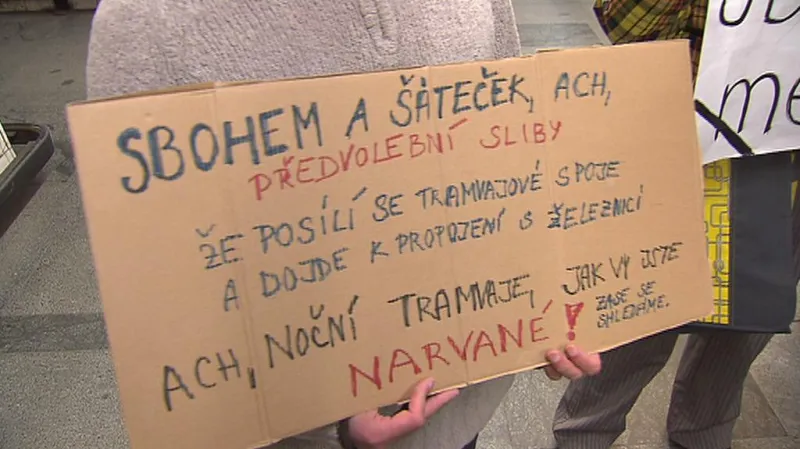 SBOHEM A ŠÁTEČEK, ACH,
PŘEDVOLEBNÍ SLIBY
ŽE POSÍLÍ SE TRAMVAJOVÉ SPOJE
A DOJDE K PROPOJENÍ S ŽELEZNICÍ
ACH, NOČNÍ TRAMVAJE, JAK VY JSTE
NARVANÉ!
ZASE SE
SHLEDÁME.